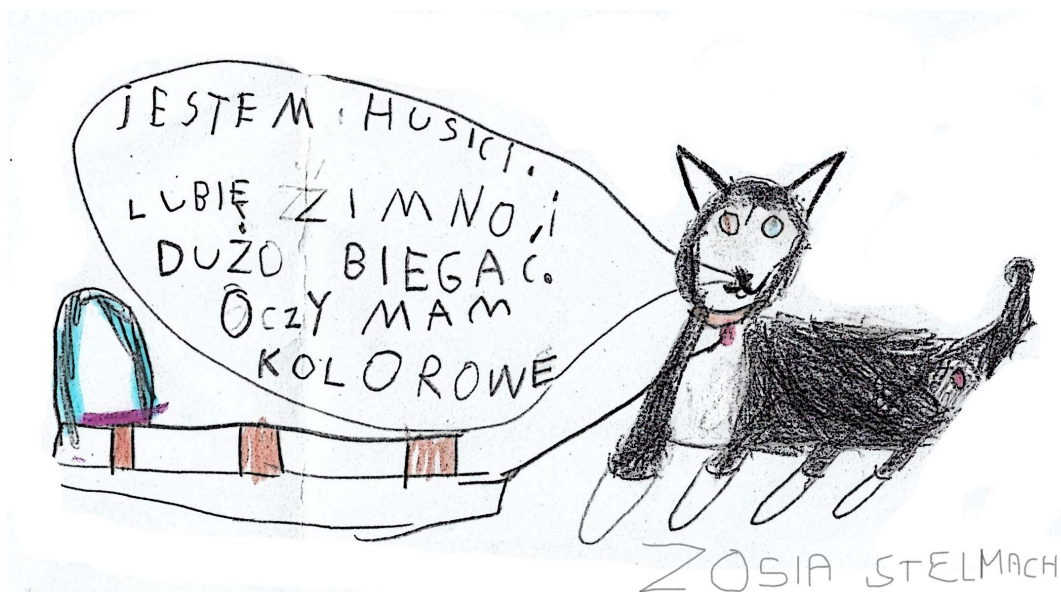 JESTEM HUSICI.
LUBIĘ ZIMNO i
DUŻO BIEGAĆ.
OCZY MAM
KOLOROWE
ZOSIA STELMACH